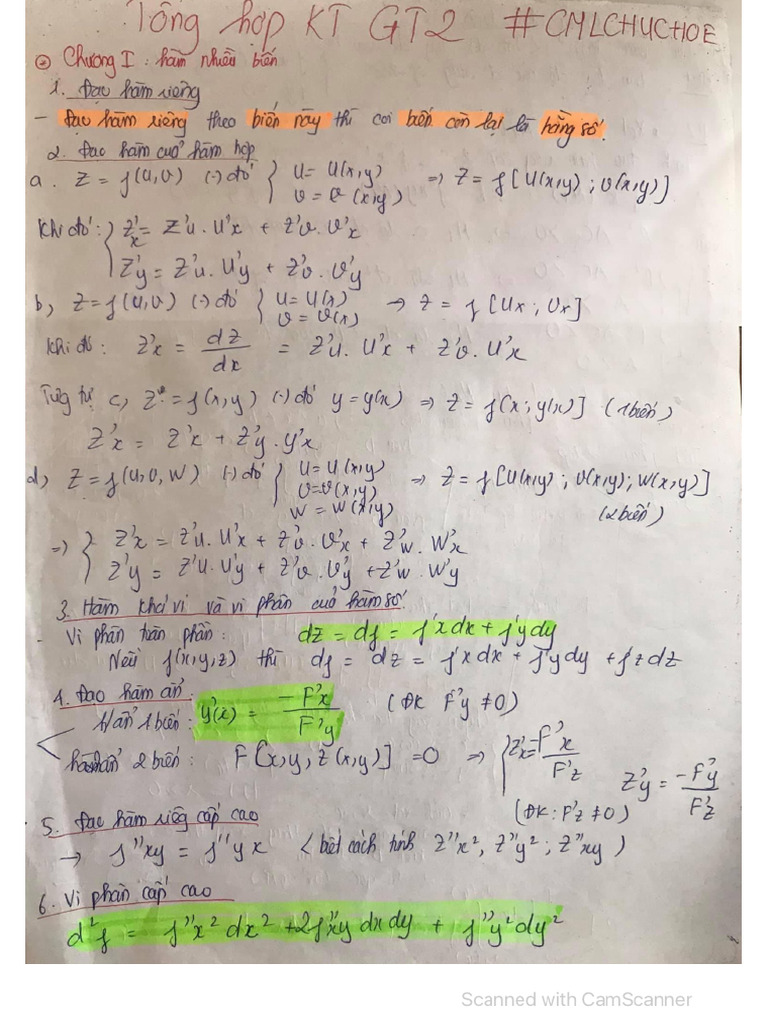 Tổng hợp KT GT2 #CMLCHUCHOE
Chương I: hàm nhiều biến
1. Đạo hàm riêng
- Đạo hàm riêng theo biến này thì coi biến còn lại là hằng số.
2. Đạo hàm của hàm hợp
a. Z = f(u,v) (-) đó { u = u(x,y) v = v(x,y) ⇒ Z = f[u(x,y); v(x,y)]
Khi đó: { Z'x = Z'u. U'x + Z'v. V'x
Z'y = Z'u. U'y + Z'v. V'y
b, Z = f(u,v) (-) đó { u = u(x) v = v(x) → Z = f[Ux; Vx]
Khi đó: Z'x = dZ/dx = Z'u. U'x + Z'v. U'x
Tương tự c, Z = f(x,y) (-) đó y = y(x) ⇒ Z = f(x; y(x)] (1 biến)
Z'x = Z'x + Z'y. y'x
d, Z = f(u,v,w) (-) đó { u = u(x,y) v = v(x,y) w = w(x,y) → Z = f[u(x,y); v(x,y); w(x,y)]
(2 biến)
⇒ { Z'x = Z'u. U'x + Z'v. V'x + Z'w. W'x
Z'y = Z'u. U'y + Z'v. V'y + Z'w. W'y
3. Hàm khả vi và vi phân của hàm số
- Vi phân toàn phần: dz = df = f'x dx + f'y dy
Nếu f(x,y,z) thì df = dz = f'x dx + f'y dy + f'z dz
4. Đạo hàm ẩn:
1 ẩn 1 biến: y'(x) = -F'x/F'y (ĐK F'y ≠ 0)
hàm ẩn 2 biến: F[x,y,z(x,y)] = 0 ⇒ { Z'x = -F'x/F'z Z'y = -F'y/F'z
(ĐK: F'z ≠ 0)
5. Đạo hàm riêng cấp cao
→ f''xy = f''yx (biết cách tính Z''x², Z''y²; Z''xy)
6. Vi phân cấp cao
d²f = f''x² dx² + 2f''xy dx dy + f''y² dy²
Scanned with CamScanner